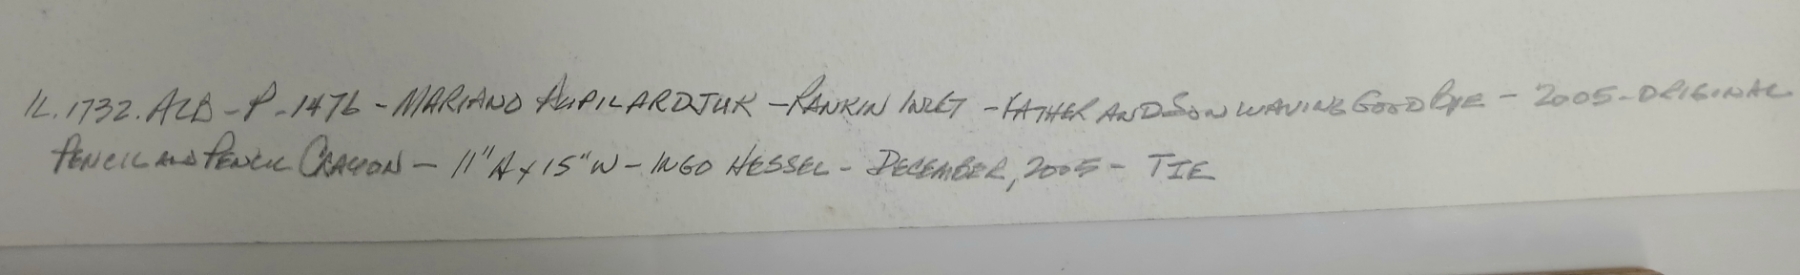 IL.1732.AZB - P - 1476 - MARIANO AUPILARDJUK - RANKIN INLET - FATHER AND SON WAVING GOOD BYE - 2005 - ORIGINAL
PENCIL AND PENCIL CRAYON - 11"H x 15"W - INGO HESSEL - DECEMBER, 2005 - TIE